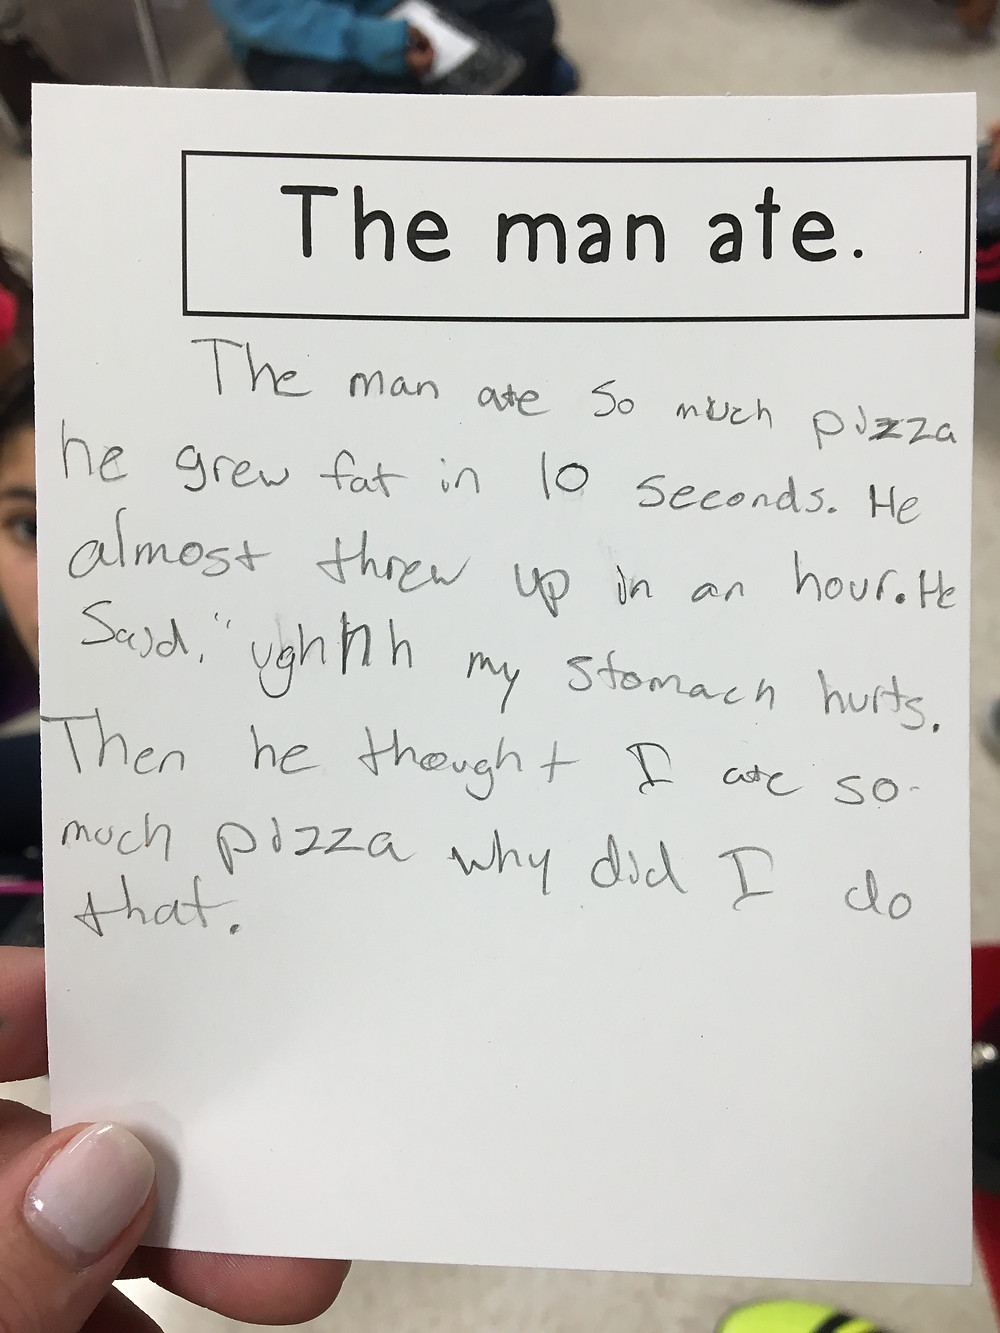 The man ate.
The man ate so much pizza
he grew fat in 10 seconds. He
almost threw up in an hour. He
Said, "ughhhh my stomach hurts.
Then he thought I ate so
much pizza why did I do
that.